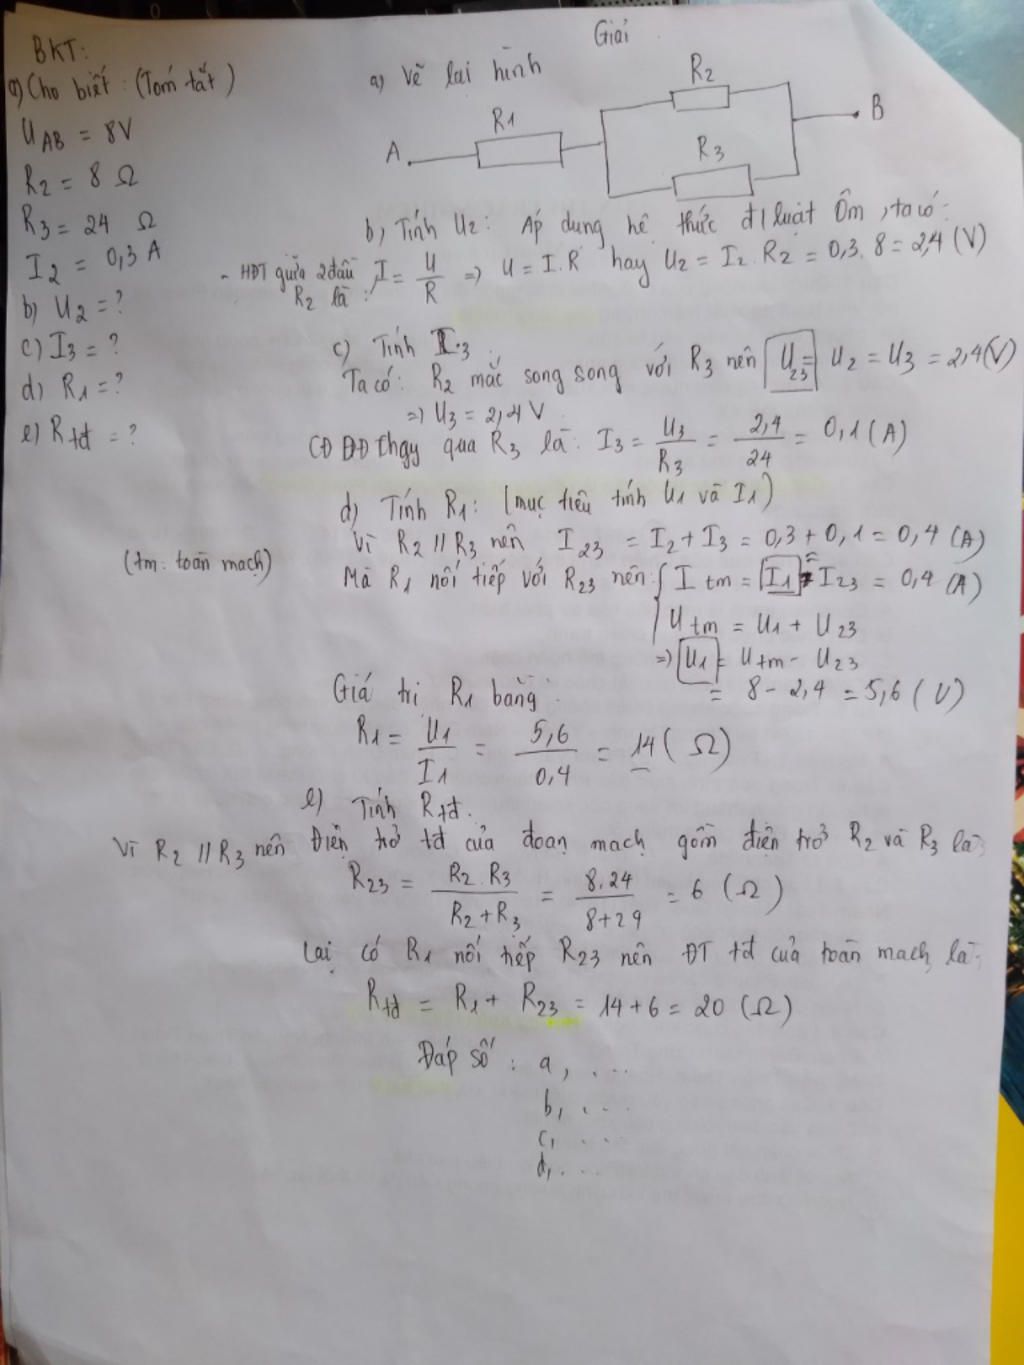 BKT:
a) Cho biết: (Tóm tắt)
U AB = 8V
R2 = 8 Ω
R3 = 24 Ω
I2 = 0,3 A
b) U2 = ?
c) I3 = ?
d) R1 = ?
e) Rtđ = ?
Giải
a) Vẽ lại hình
A
R1
R2
R3
B
b, Tính U2: Áp dụng hệ thức đ/luật Ôm, ta có:
- HĐT giữa 2 đầu R2 là: I = U/R => U = I.R hay U2 = I2.R2 = 0,3.8 = 2,4 (V)
c) Tính I3
Ta có: R2 mắc song song với R3 nên U23 = U2 = U3 = 2,4(V)
=> U3 = 2,4 V
CĐDĐ chạy qua R3 là: I3 = U3/R3 = 2,4/24 = 0,1 (A)
d) Tính R1: (mục tiêu tính U1 và I1)
Vì R2 // R3 nên I23 = I2 + I3 = 0,3 + 0,1 = 0,4 (A)
(tm: toàn mạch)
Mà R1 nối tiếp với R23 nên: { I tm = I1 = I23 = 0,4 (A)
Utm = U1 + U23
=> U1 = Utm - U23
= 8 - 2,4 = 5,6 (V)
Giá trị R1 bằng:
R1 = U1/I1 = 5,6/0,4 = 14 (Ω)
e) Tính Rtđ.
Vì R2 // R3 nên Điện trở tđ của đoạn mạch gồm điện trở R2 và R3 là:
R23 = R2.R3/R2+R3 = 8.24/8+24 = 6 (Ω)
Lại có R1 nối tiếp R23 nên ĐT tđ của toàn mạch là:
Rtđ = R1 + R23 = 14 + 6 = 20 (Ω)
Đáp số: a, ...
b, ...
c, ...
d, ...